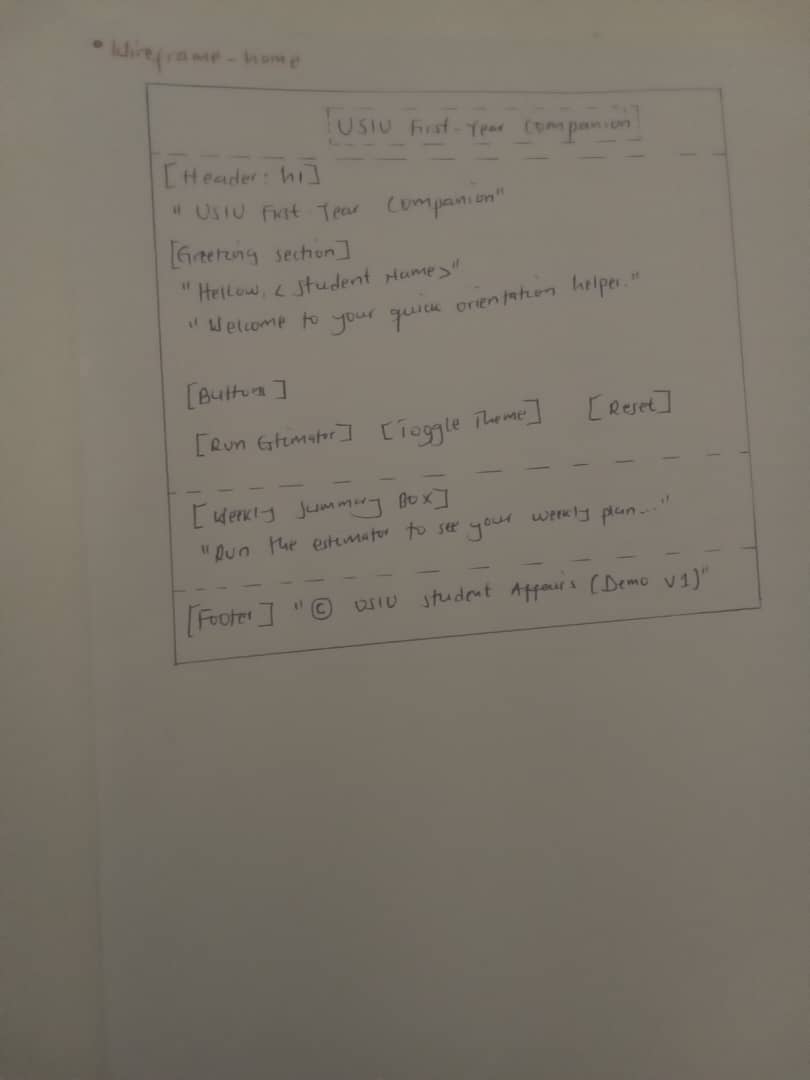 • Wireframe - home
USIU First-Year Companion
[Header: h1]
" USIU First Year Companion"
[Greeting section]
"Hellow, < student Name>"
" Welcome to your quick orientation helper."
[Button]
[Run Estimator] [Toggle Theme] [Reset]
[Weekly Summary Box]
"Run the estimator to see your weekly plan..."
[Footer] "© USIU student Affairs (Demo v1)"